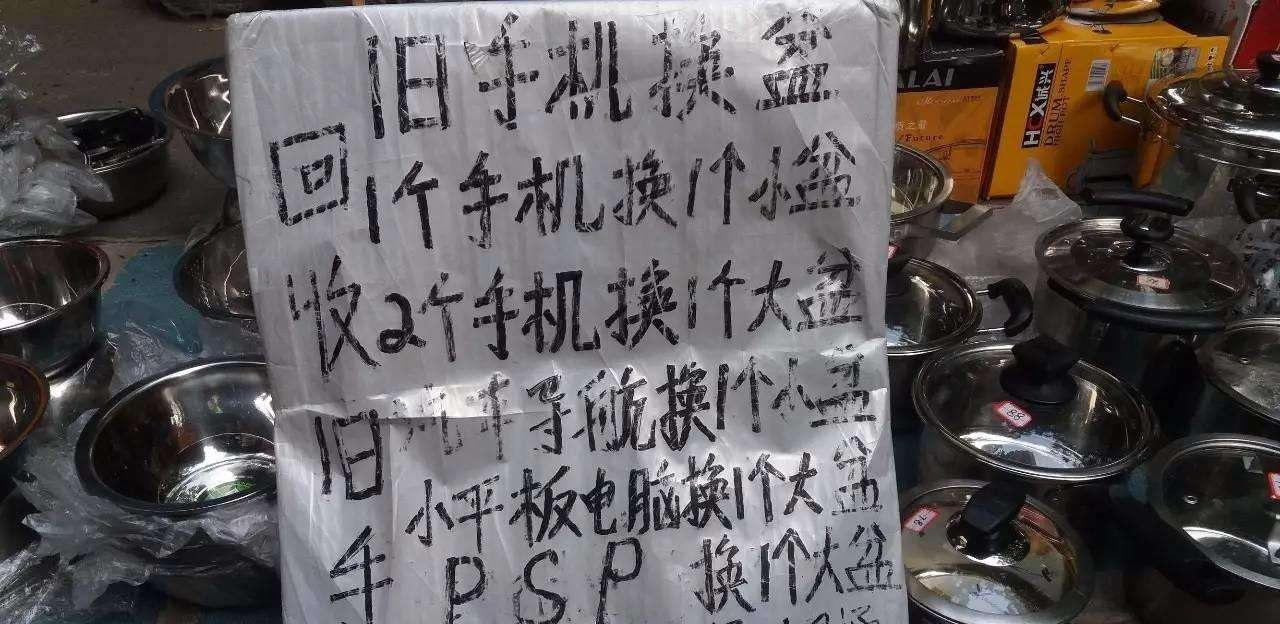 旧手机换盆
1个手机换1个小盆
2个手机换1个大盆
汽车导航换1个小盆
小平板电脑换1个大盆
PSP 换1个大盆
回收旧手
ALAI
Future
HCX诚兴
DRUM SHAPE
HIGH POT
88
78